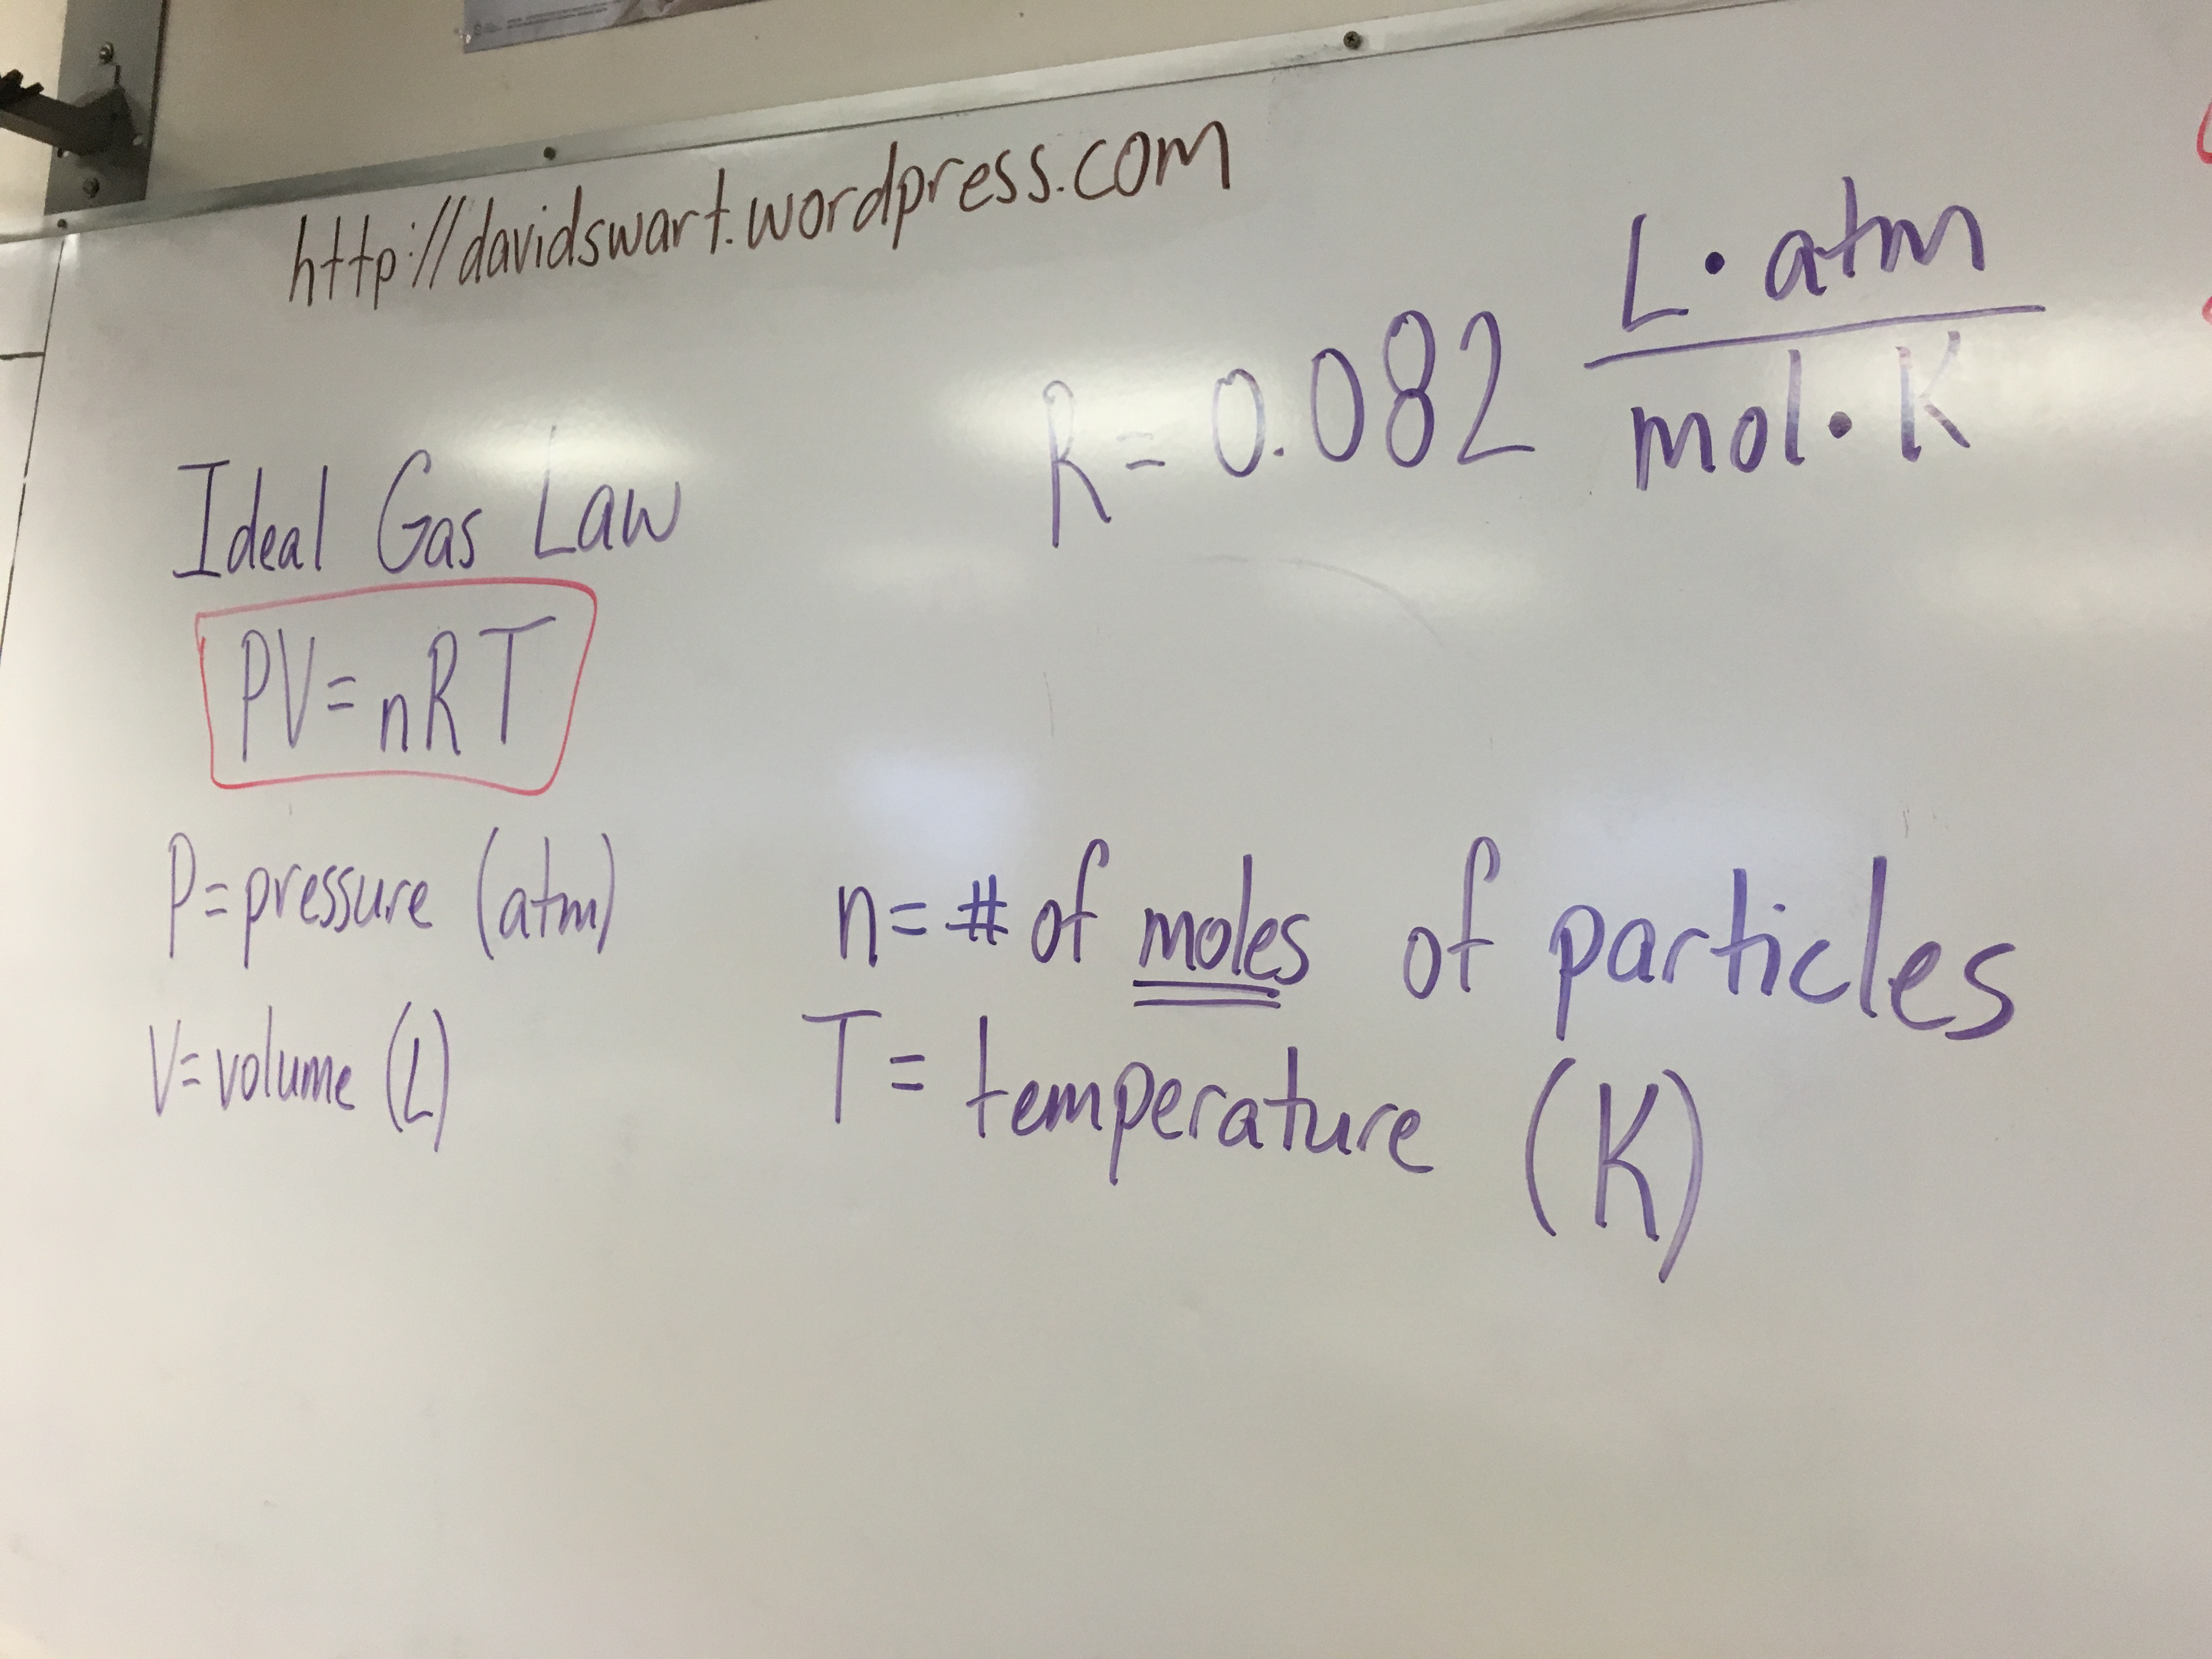 http://davidswart.wordpress.com
R = 0.082 L · atm / mol · K
Ideal Gas Law
PV = nRT
P = pressure (atm)
V = volume (L)
n = # of moles of particles
T = temperature (K)